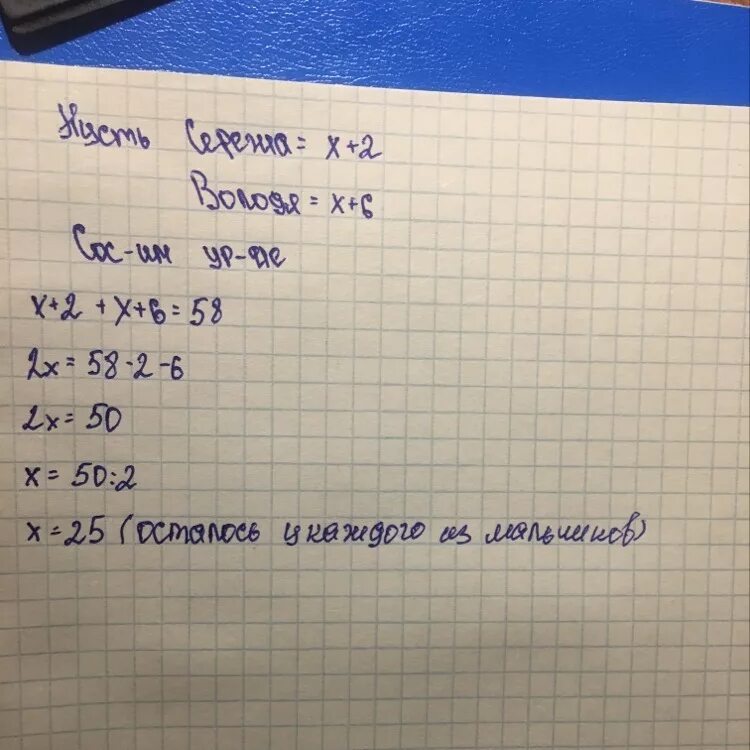 Пусть Сережа = x+2
Володя = x+6
Сос-им ур-ие
x+2 + x+6 = 58
2x = 58-2-6
2x = 50
x = 50:2
x = 25 (осталось у каждого из мальчиков)